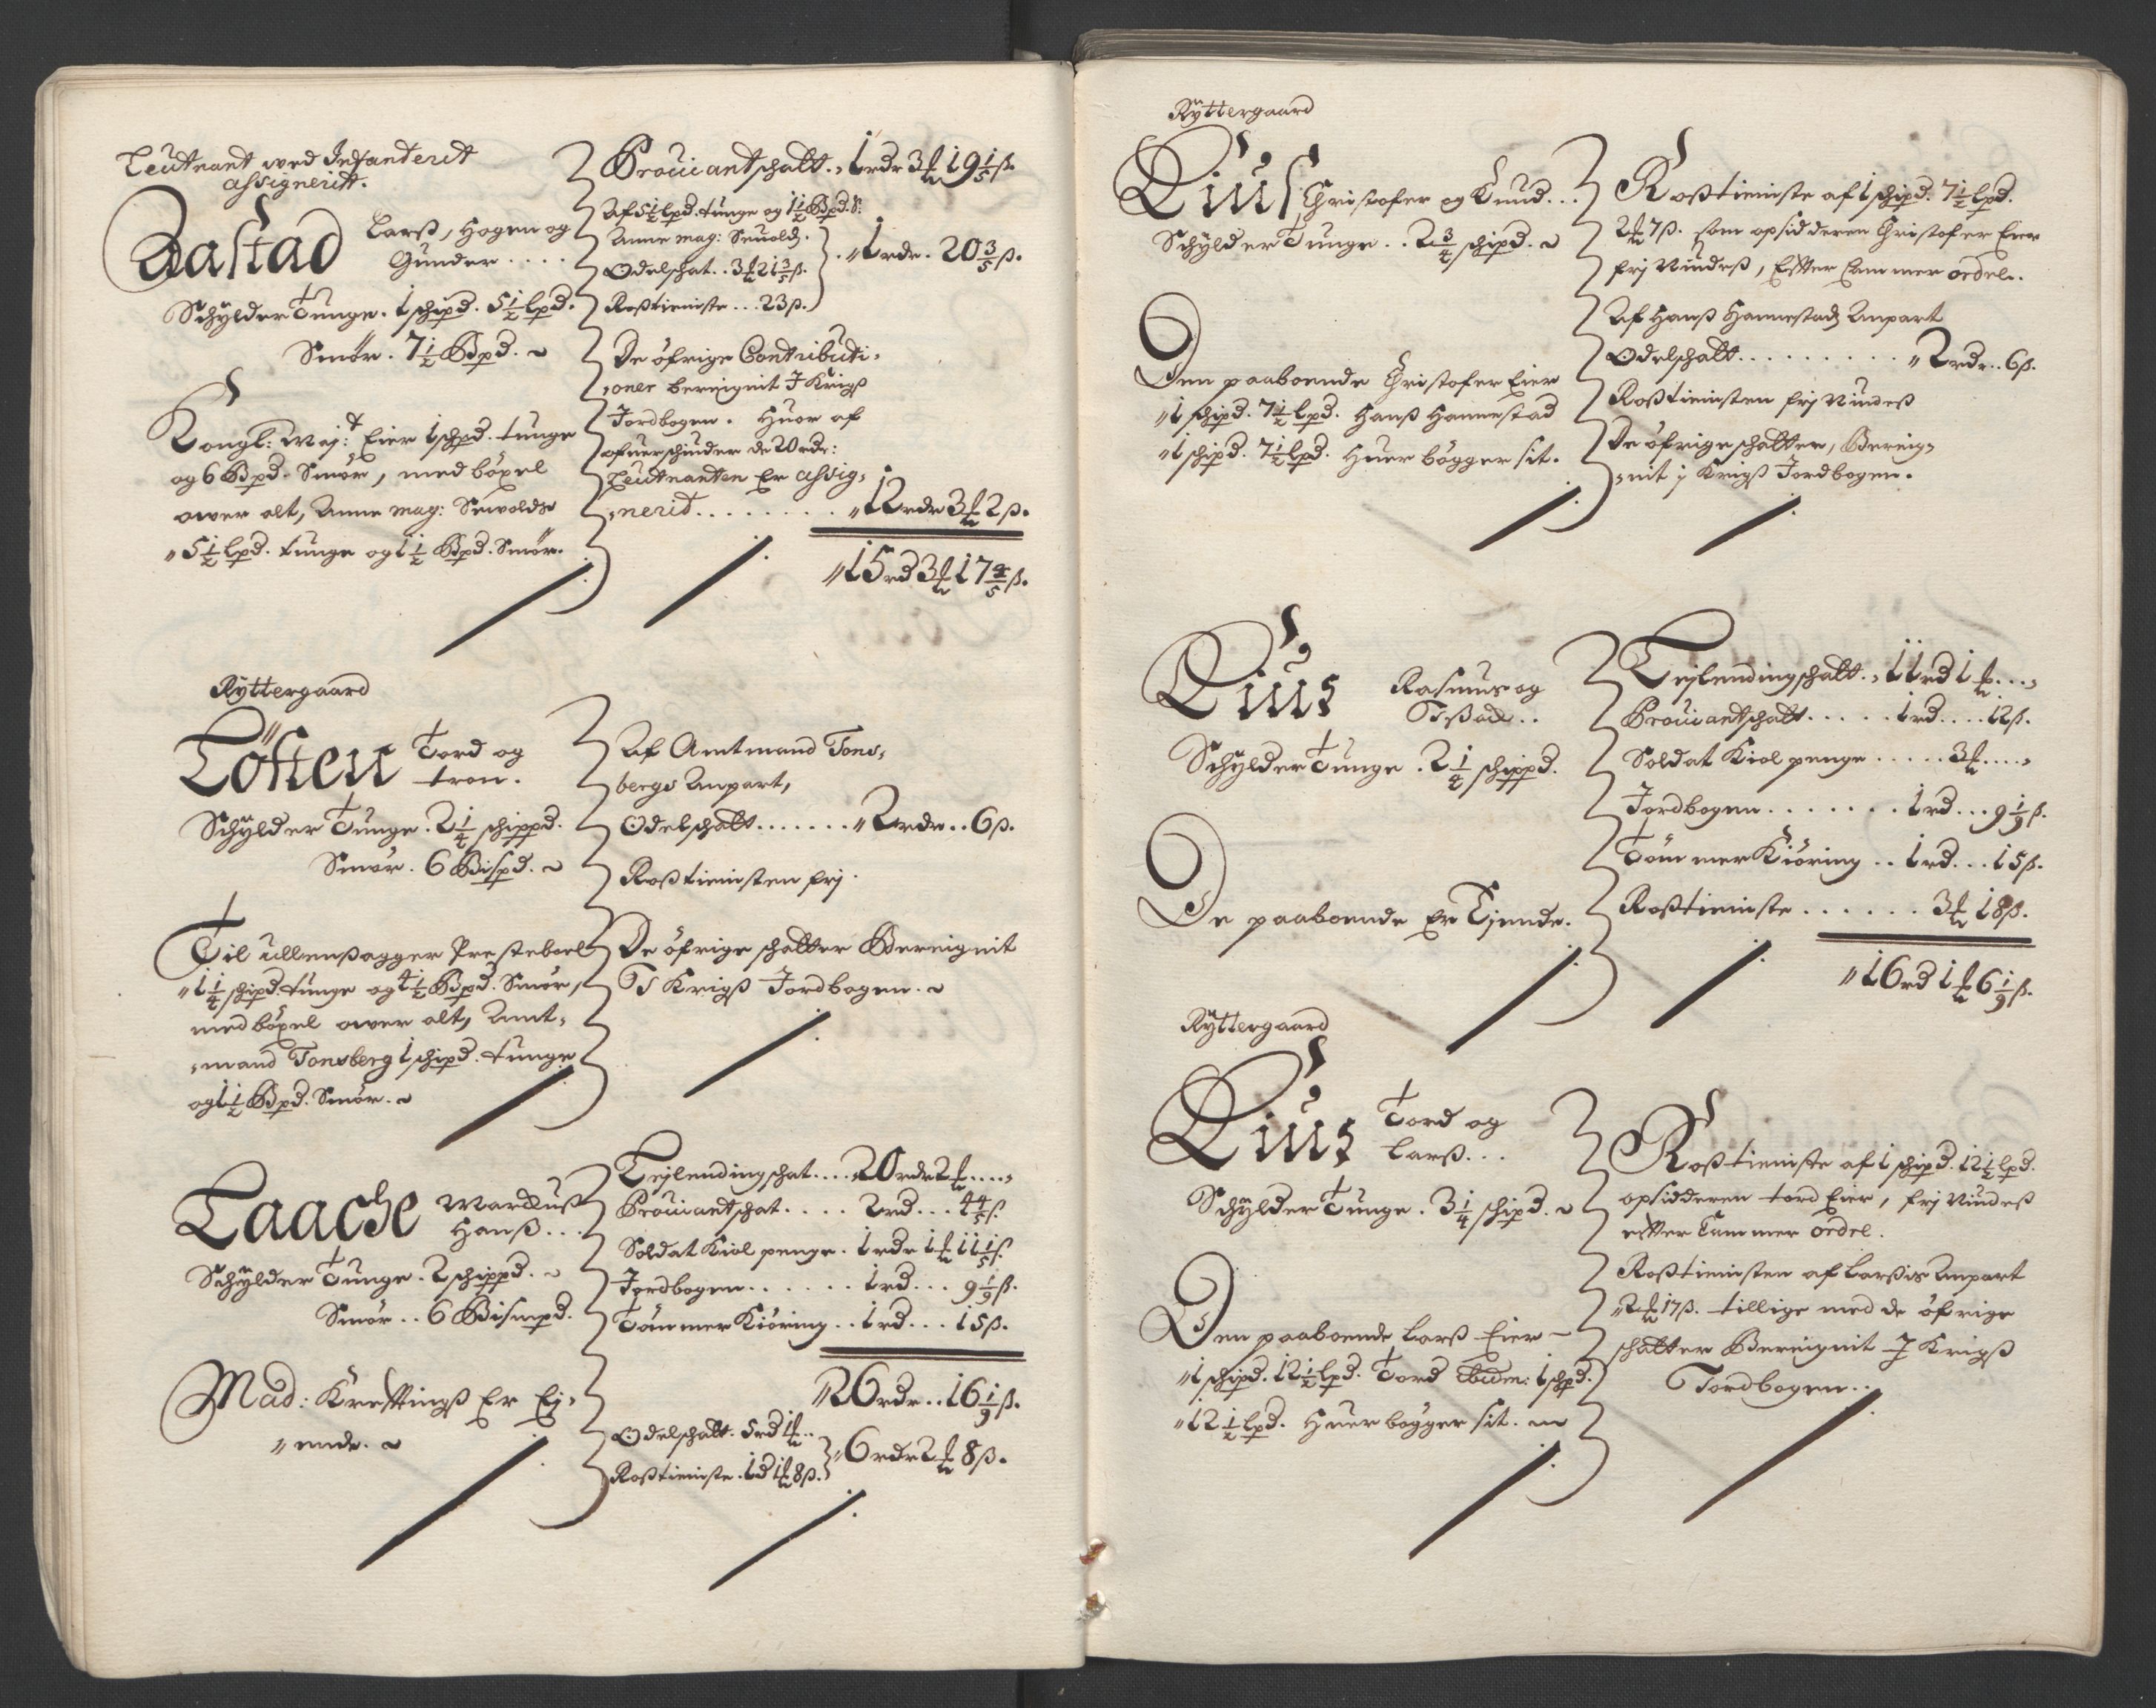 Leutnant wed Infanterit
assignerit.
Aastad Larß, Hogen og
Gunder . . . .
Schylder Tunge . 1 schipd. 5½ lpd.
Smör . 7½ Bpd.
Kongl: Maj:t Eier 1 schpd. tunge
og 6 Bpd. Smör, med böxel
ower alt, Anne Mag: Sewolds
5½ lpd. tunge og 1½ Bpd. Smör.
Prouiantschatt . 1 rdr 3 ₰ 19 1/5 ß.
Af 5½ lpd. tunge og 1½ Bpd. S:
Anne Mag: Seuolds.
Odelschat . . 3 ₰ 21 3/5 ß.
Roßtieniste . . . 23 ß.
1 rdr . 20 3/5 ß.
De öfrige Contributi-
oner bereignit J Krigß
Jordbogen. Huor af
ofuerschiuder de 20 rdr:
Leutnanten Er assig-
nerit . . . . . . . . 12 rdr 3 ₰ 2 ß.
15 rd 3 ₰ 17 4/5 ß.
Ryttergaard
Töften Tord og
tron.
Schylder Tunge . 2¼ schippd.
Smör . 6 Bispd.
Til Ullensagger Presteboel
1¼ schipd. tunge og 4½ Bpd. Smör,
med böxel ower alt, Amt-
mand Tonsberg 1 schipd. tunge
og 1½ Bpd. Smör.
Af Amtmand Tons-
bergs Anpart,
Odelschatt . . . . . . . 2 rdr . . 6 ß.
Roßtienisten frj.
De öfrige schatter Bereignit
J Krigß Jordbogen.
Taache Marcuß
Hanß . . .
Schylder Tunge . 2 schippd.
Smör . . 6 Bismpd.
Mad: Krefftingß Er Ej-
ende.
Lejlendingschat . . . 20 rdr 2 ₰ . . . .
Prouiantschat . . . . 2 rd . . . 4 4/5 ß.
Soldat Kiol penge . 1 rdr 1 ₰ 11 1/5 ß.
Jordbogen . . . . . . 1 rd . . . 9 1/9 ß.
Tömmer Kiöring . . 1 rd . . . 15 ß.
26 rdr . . 16 1/9 ß.
Odelschatt . 5 rd 1 ₰ . .
Roßtieniste . 1 d 1 ₰ 8 ß.
6 rdr 2 ₰ 8 ß.
Ryttergaard
Qius Christofer og Knud . . .
Schylder Tunge . . 2¾ schipd.
Den paaboende Christofer Eier
1 schipd. 7½ lpd. Hanß Hannestad
1 schipd. 7½ lpd. Huer bögger sit.
Roßtieniste af 1 schipd. 7½ lpd.
2 ₰ 7 ß. som opsidderen Christofer Eier
frj Niudeß, Effter Cammer ordele.
Af Hanß Hannestads Anpart
Odelschatt . . . . . . . . . . 2 rdr . . 6 ß.
Roßtienisten frj Niudeß
De öfrige schatter, Bereig-
nit j Krigß Jordbogen.
Qius Rasmus og
. .
Schylder Tunge . 2¼ schippd.
De paaboende Er Ejende.
Lejlendingschatt . 11 rd 1 ₰ . . .
Prouiantschatt . . . . . 1 rd . . . . 12 ß.
Soldat Kiol penge . . . . . 3 ₰ . . . .
Jordbogen . . . . . . . 1 rd . . . 9 1/9 ß.
Tömmer Kiöring . . 1 rd . . . 15 ß.
Roßtieniste . . . . . . 3 ₰ 18 ß.
16 rd 1 ₰ 6 1/9 ß.
Ryttergaard
Qius Tord og
Larß . . .
Schylder Tunge . 3¼ schipd.
Den paaboende Larß Eier
1 schipd. 12½ lpd. Tord Ibidem: 1 schpd.
12½ lpd. Huer bögger sit.
Roßtieniste af 1 schipd. 12½ lpd.
opsidderen tord Eier, frj Niudeß
effter Cammer ordel.
Roßtienisten af Larßis Anpart
2 ₰ 17 ß. tillige med de öfrige
schatter Bereignit J Krigß
Jordbogen . .